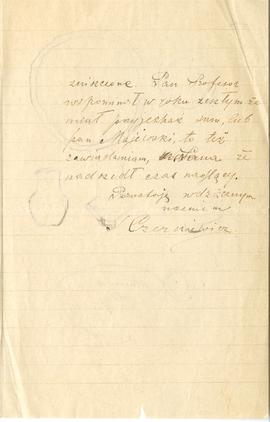 zniszczone. Pan Profesor
wspominał w roku zeszłym że
miał przyjechać sam, lub
pan Majewski, to też
zawiadamiam, Pana że
nadszedł czas naglący.
Pozostaję wdzięcznym
uczniem
Czerniewicz